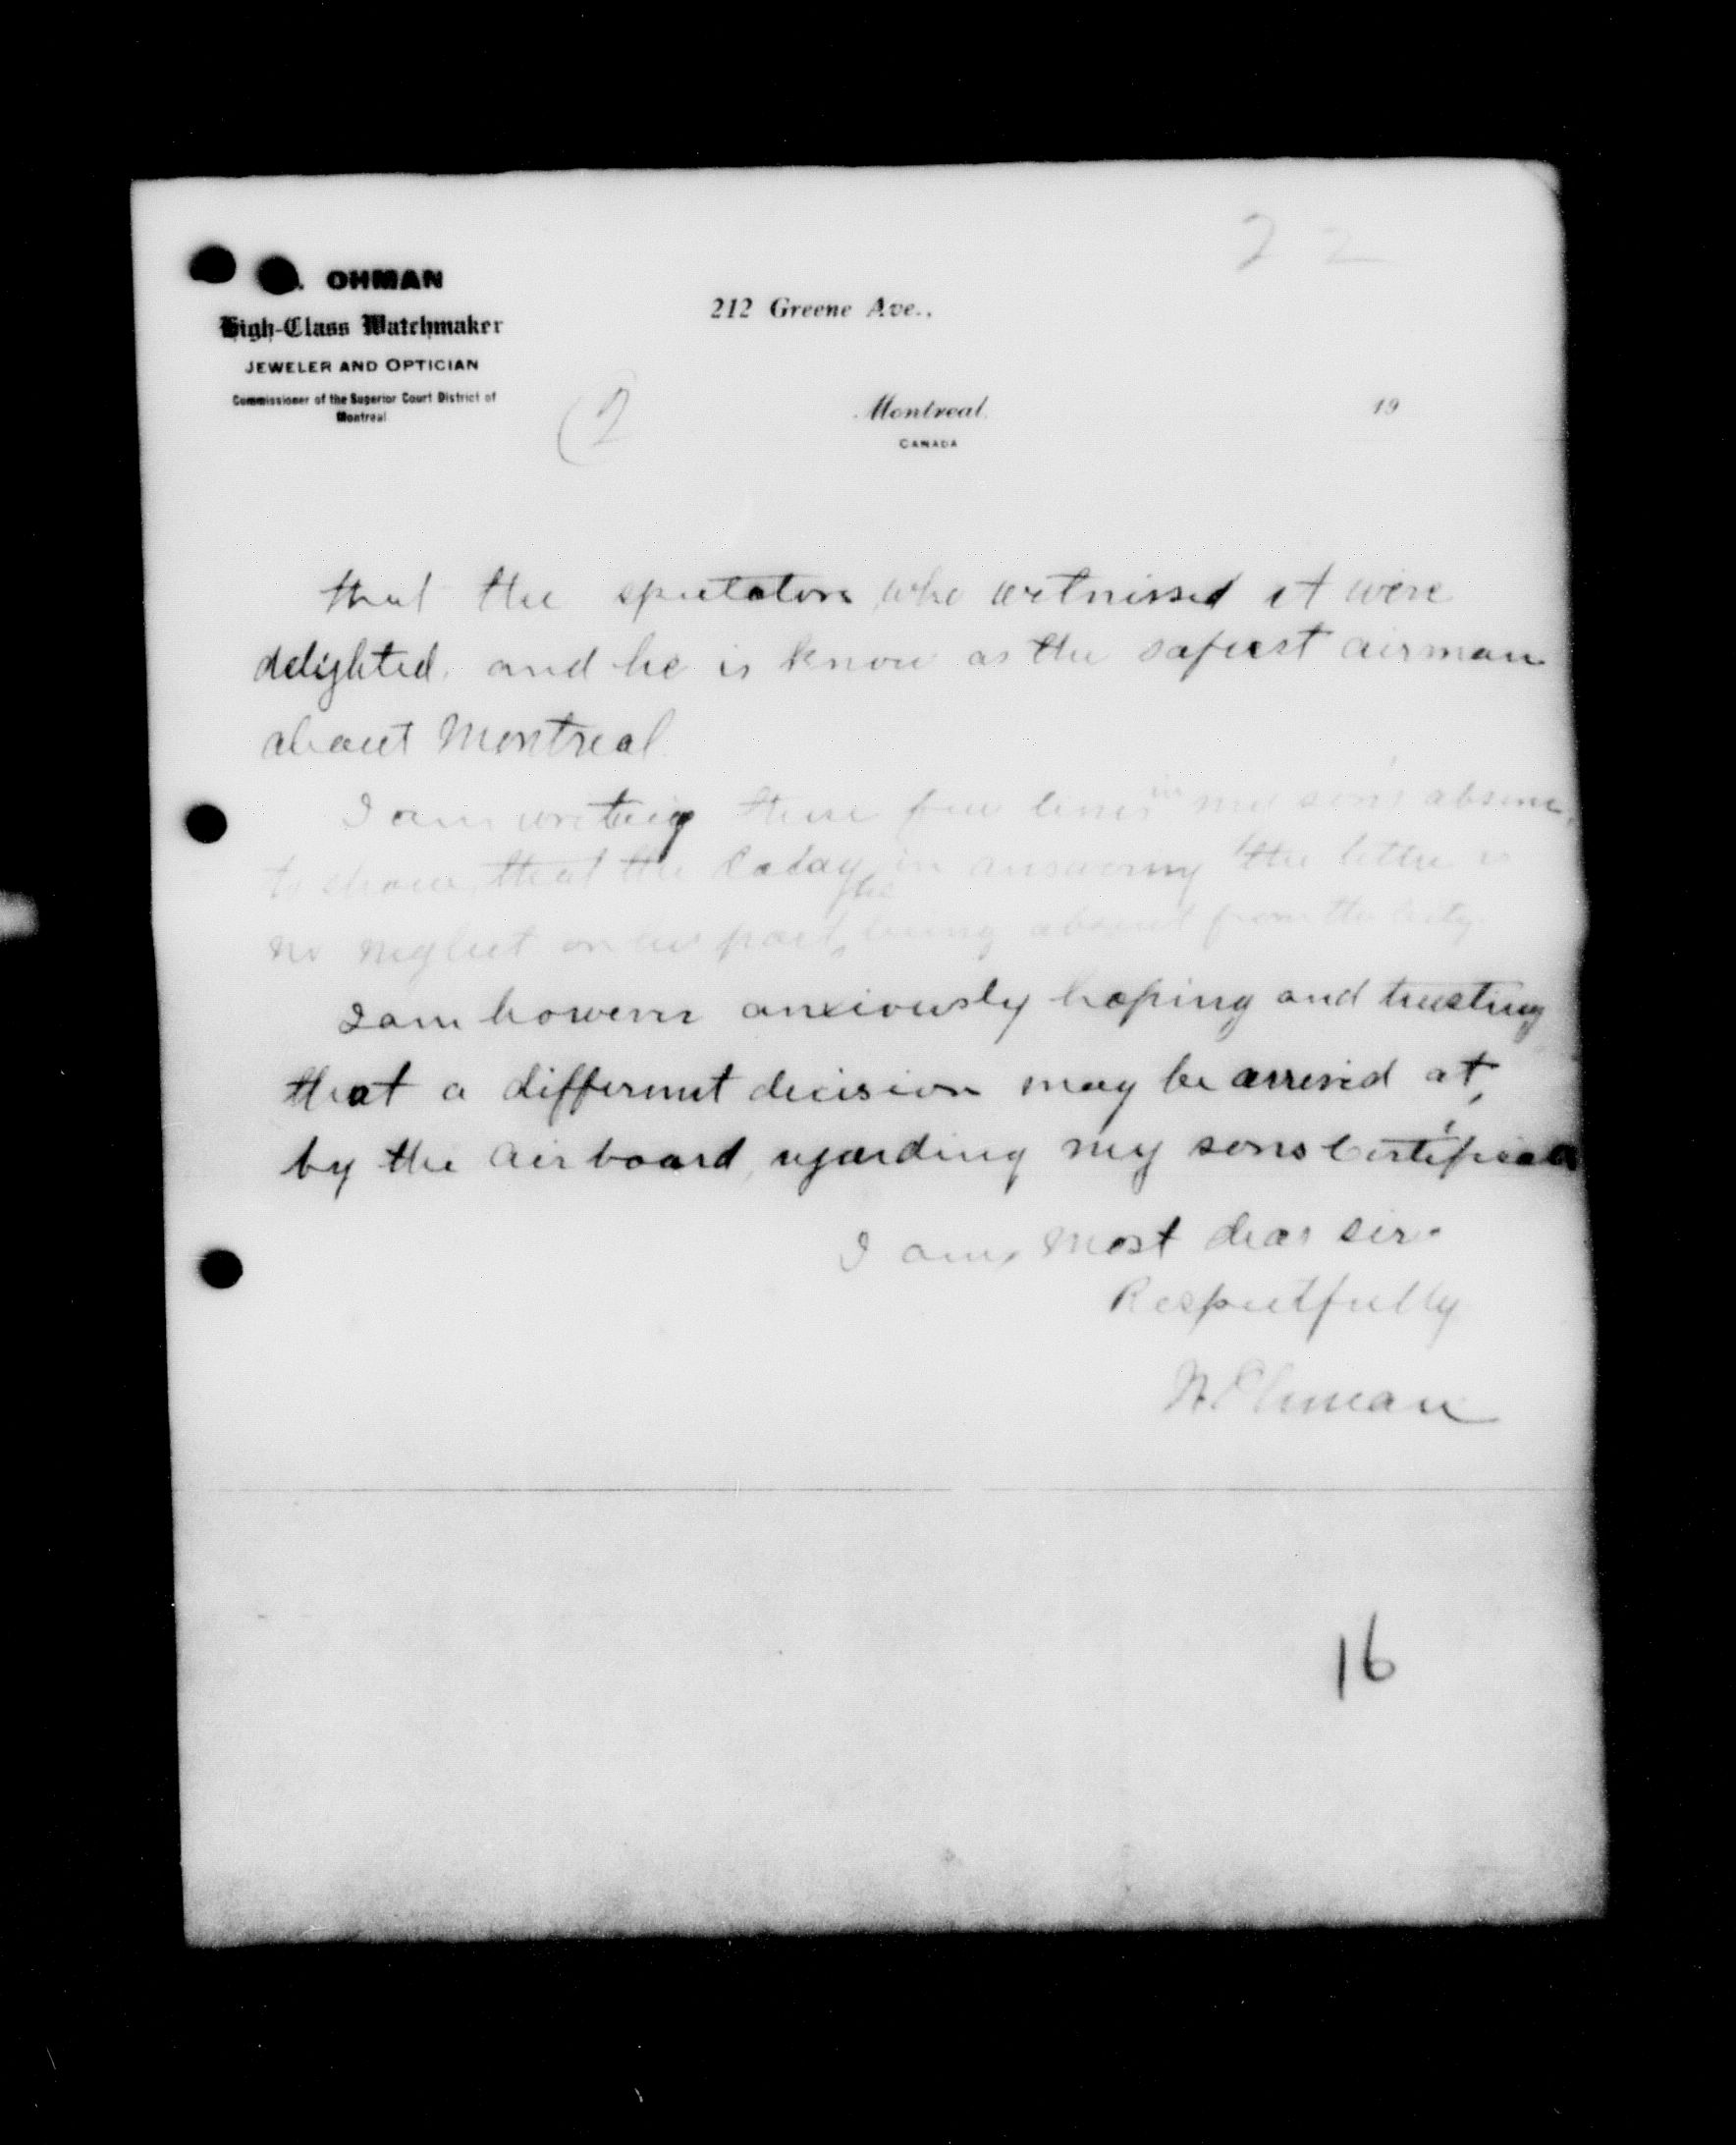 22
. OHMAN
High-Class Watchmaker
JEWELER AND OPTICIAN
Commissioner of the Superior Court District of
Montreal
212 Greene Ave.,
(2
Montreal
CANADA
19
that the spectators who witnissed it were
delighted. and he is know as the safeest airman
about Montreal
I am writing these few lines in my son's absence,
to show that the delay in answering the letter is
no neglect on his part, he being absent from the city.
I am however anxiously hoping and trusting
that a different decision may be arrived at,
by the air board, regarding my sons Certificate
I am, most dear sir.
Respectfully
N. Ohman
16